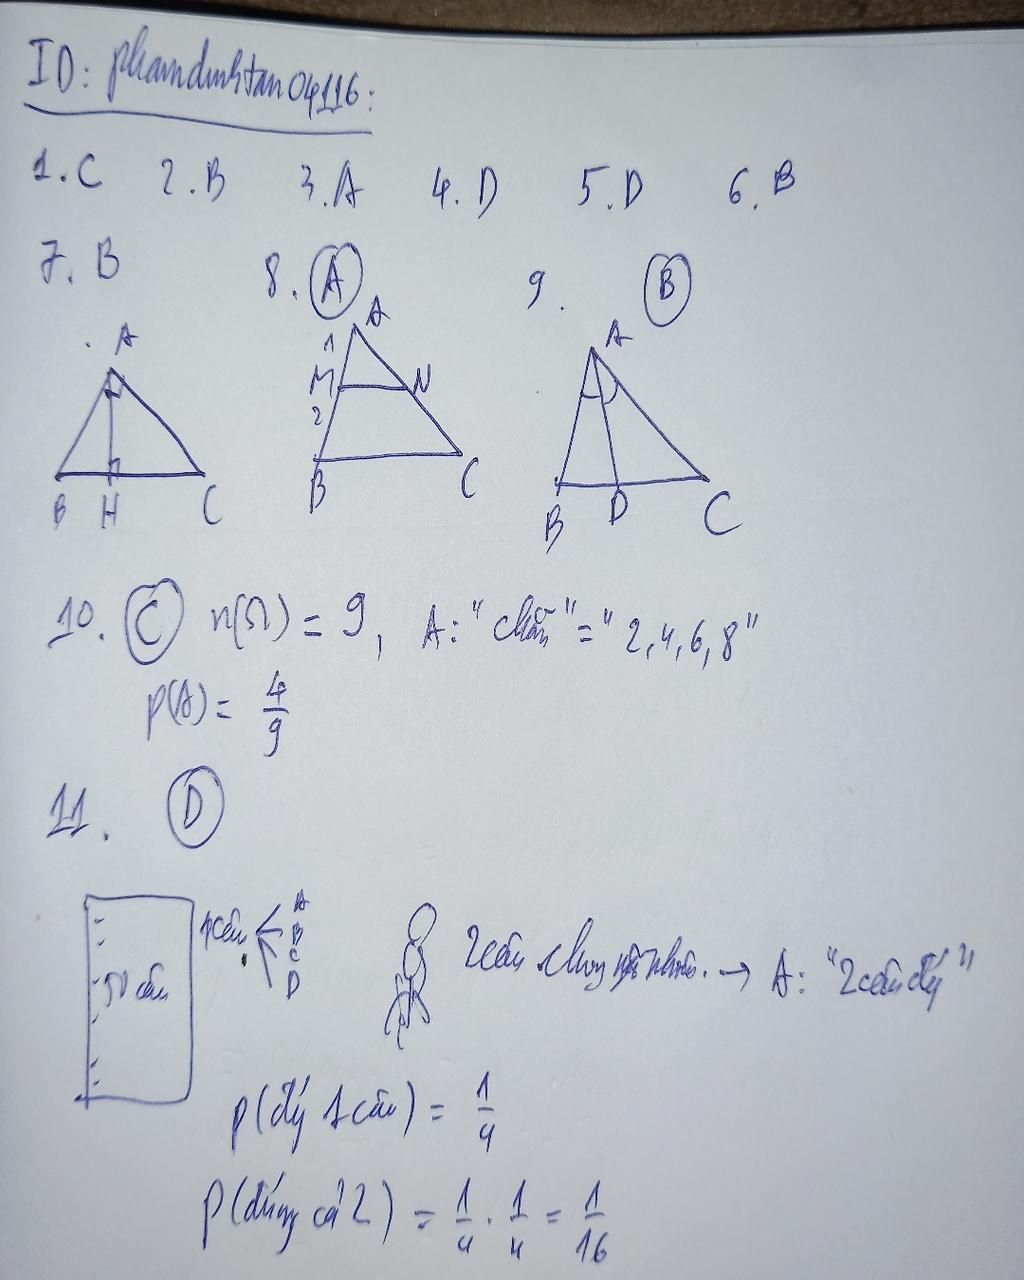 ID: phamdinhtan04116:
1. C 2. B 3. A 4. D 5. D 6. B
7. B 8. A 9. B
A A A
1
M N
2
B H C B C B D C
10. C n(Ω) = 9, A: "chẵn" = "2,4,6,8"
P(A) = 4/9
11. D
50 câu 1 câu A B C D 2 câu → A: "2 câu đúng"
P(đúng 1 câu) = 1/4
P(đúng cả 2) = 1/4 . 1/4 = 1/16